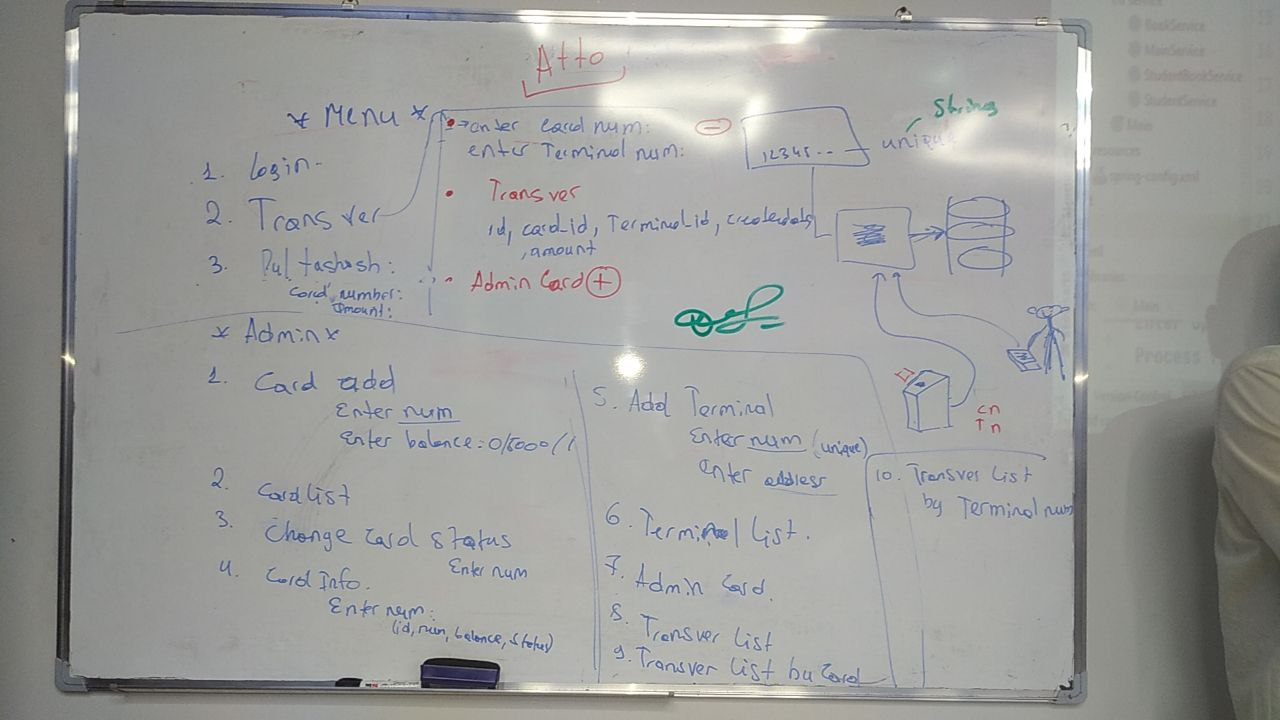 Atto
* Menu *
1. Login.
2. Transver
3. Pul tashash:
Card number:
amount:
enter Card num:
enter Terminal num:
Transver
id, card-id, Terminal-id, createdate,
, amount
Admin Card +
12345..
unique
String
* Admin *
1. Card add
Enter num
Enter balance: 0/5000/
2. Card List
3. Change Card status
Enter num
4. Card Info.
Enter num:
(id, num, balance, status)
5. Add Terminal
Enter num (unique)
Enter address
6. Terminal List.
7. Admin Card.
8. Transver List
9. Transver List by Card
10. Transver List
by Terminal num
cn
Tn
BookService
MainService
StudentBookService
StudentService
Main
spring-config.xml
Process